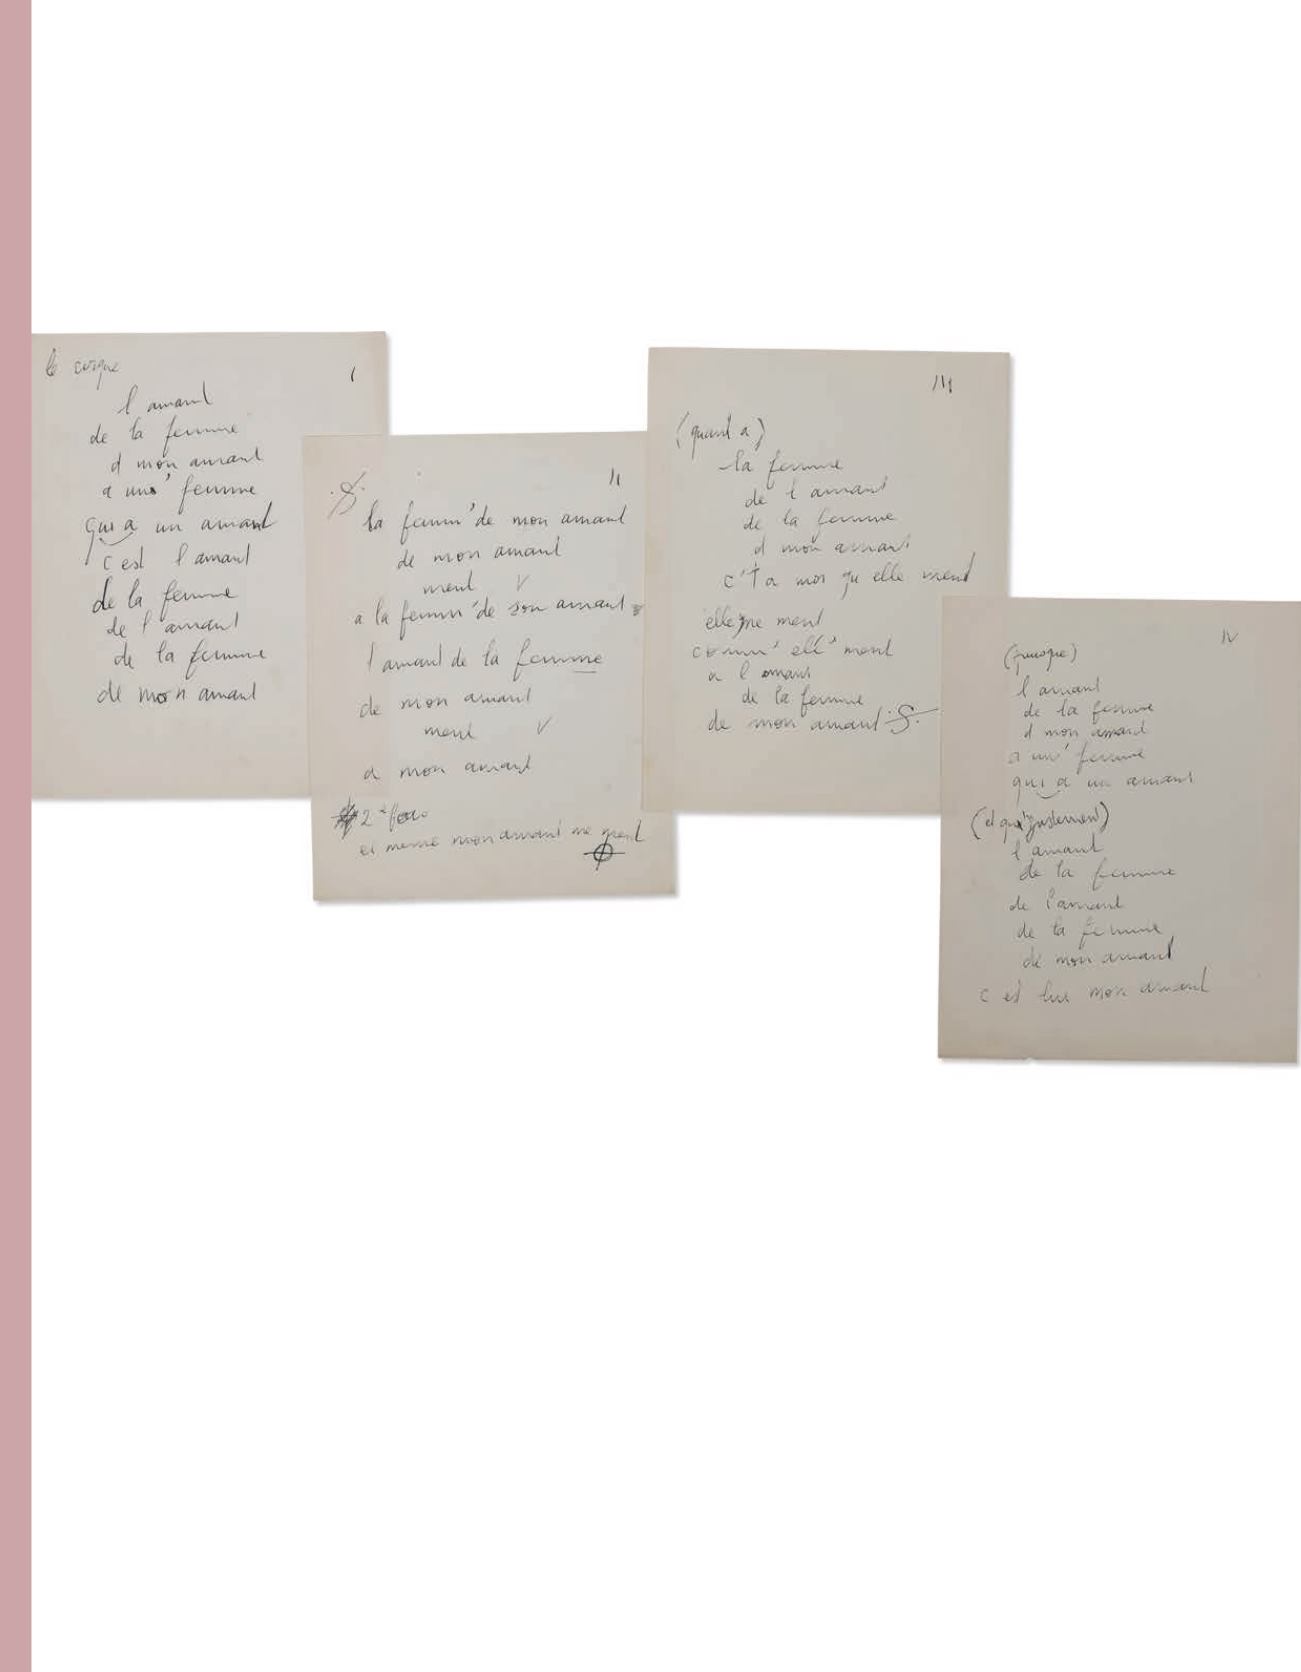 le cirque
I
l amant
de la femme
d mon amant
a un' femme
qui a un amant
c est l amant
de la femme
de l amant
de la femme
de mon amant
II
la femm' de mon amant
de mon amant
ment V
a la femm' de son amant
l amant de la femme
de mon amant
ment V
a mon amant
2e fois
et meme mon amant me ment
III
(quant a)
la femme
de l amant
de la femme
d mon amant
c't a moi qu elle ment
elle me ment
comm' ell' ment
a l amant
de la femme
de mon amant
IV
(puisque)
l amant
de la femme
d mon amant
a un' femme
qui a un amant
(et qu'justement)
l amant
de la femme
de l'amant
de la femme
de mon amant
c est lui mon amant